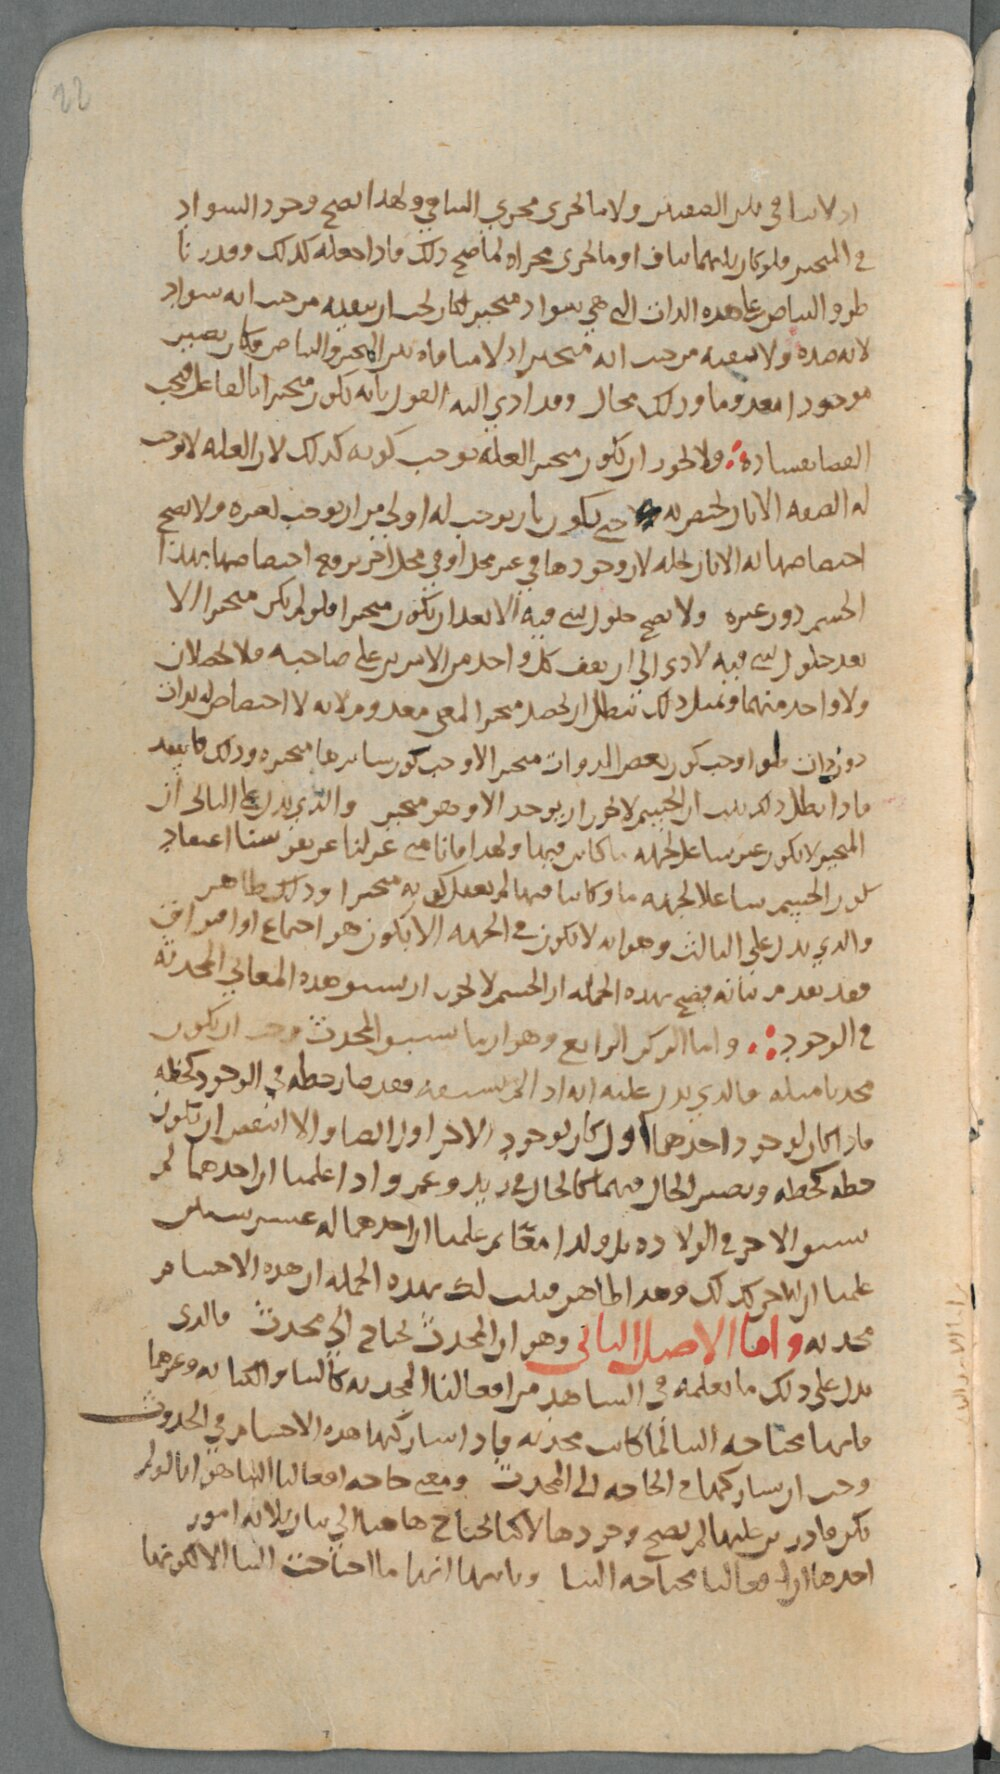 22
اذ لا تنافي بين الصفتين ولا ما يجري مجرى التنافي ولهذا يصح وجود السواد
في المتحيز فلو كان بينهما تناف او ما يجري مجراه لما صح ذلك فاذا جعله كذلك وقدرنا
طرو البياض على هذه الذات التي هي سواد متحيز لكان يجب ان ينفيه من حيث انه سواد
لانه ضده ولا ينفيه من حيث انه متحيز اذ لا منافاة بين التحيز والبياض فكان يصير
موجودا معدوما وذلك محال وقد ادى اليه القول بانه يكون متحيزا بالفاعل فيجب
القضا بفساده ولا يجوز ان يكون متحيزا لعلة توجب كونه كذلك لان العلة لا توجب
له الصفة الا بان يختص به حتى يكون بان يوجب له اولى من ان يوجب لغيره ولا يصح
اختصاصها له الا بان تحله لان وجودها في غير محل او في محل اخر يرفع اختصاصها بهذا
الجسم دون غيره ولا يصح حلول شي فيه الا بعد ان يكون متحيزا فلو لم يكن متحيزا الا
بعد حلول شي فيه لادى الى ان يقف كل واحد من الامرين على صاحبه فلا يحصلان
ولا واحد منهما وبمثل ذلك نبطل ان يحصل متحيزا لمعنى معدوم لانه لا اختصاص له بذات
دون ذات فلو اوجب كون بعض الذوات متحيزا لاوجب كون سايرها متحيزه وذلك
فاذا بطل ذلك ثبت ان الجسم لا يجوز ان يوجد الا وهو متحيز والذي يدل على الثاني ان
المتحيز لا يكون غير شاغل لجهة ما كاين فيها ولهذا فانا متى عزلنا عن نفوسنا اعتقاد
كون الجسم شاغلا لجهة ما وكاينا فيها لم نعقل كونه متحيزا وذلك ظاهر
والذي يدل على الثالث وهو انه لا يكون في الجهة الا بكون هو اجتماع او افتراق
فقد تقدم بيانه فصح بهذه الجملة ان الجسم لا يجوز ان يسبق هذه المعاني المحدثة
في الوجود واما الركن الرابع وهو ان ما لم يسبق المحدث وجب ان يكون
محدثا مثله فالذي يدل عليه انه اذا لم يسبقه فقد صار حظه في الوجود كحظه
فاذا كان لوجود احدهما اول كان لوجود الاخر اول ايضا والا انتقض ان يكون
حظه كحظه وتصير الحال فيهما كالحال في زيد وعمرو اذا علمنا ان احدهما لم
يسبق الاخر في الولادة بل ولدا معا ثم علمنا ان احدهما له عشر سنين
علمنا ان الاخر كذلك وهذا ظاهر فثبت لك بهذه الجملة ان هذه الاجسام
محدثة واما الاصل الثاني وهو ان المحدث يحتاج الى محدث فالذي
يدل على ذلك ما نعلمه في الشاهد من افعالنا المحدثة كالبنا والكتابة وغيرهما
فانها محتاجه الينا لما كانت محدثه فاذا شاركتها هذه الاجسام في الحدوث
وجب ان تشاركها في الحاجه الى المحدث ومعنى حاجه افعالنا الينا هو انا لو لم
نكن قادرين عليها لم يصح وجودها لاكنا نحتاج هاهنا الى بيان ثلاثة امور
احدها ان افعالنا محتاجه الينا وثانيها انها ما احتاجت الينا الا لكونها